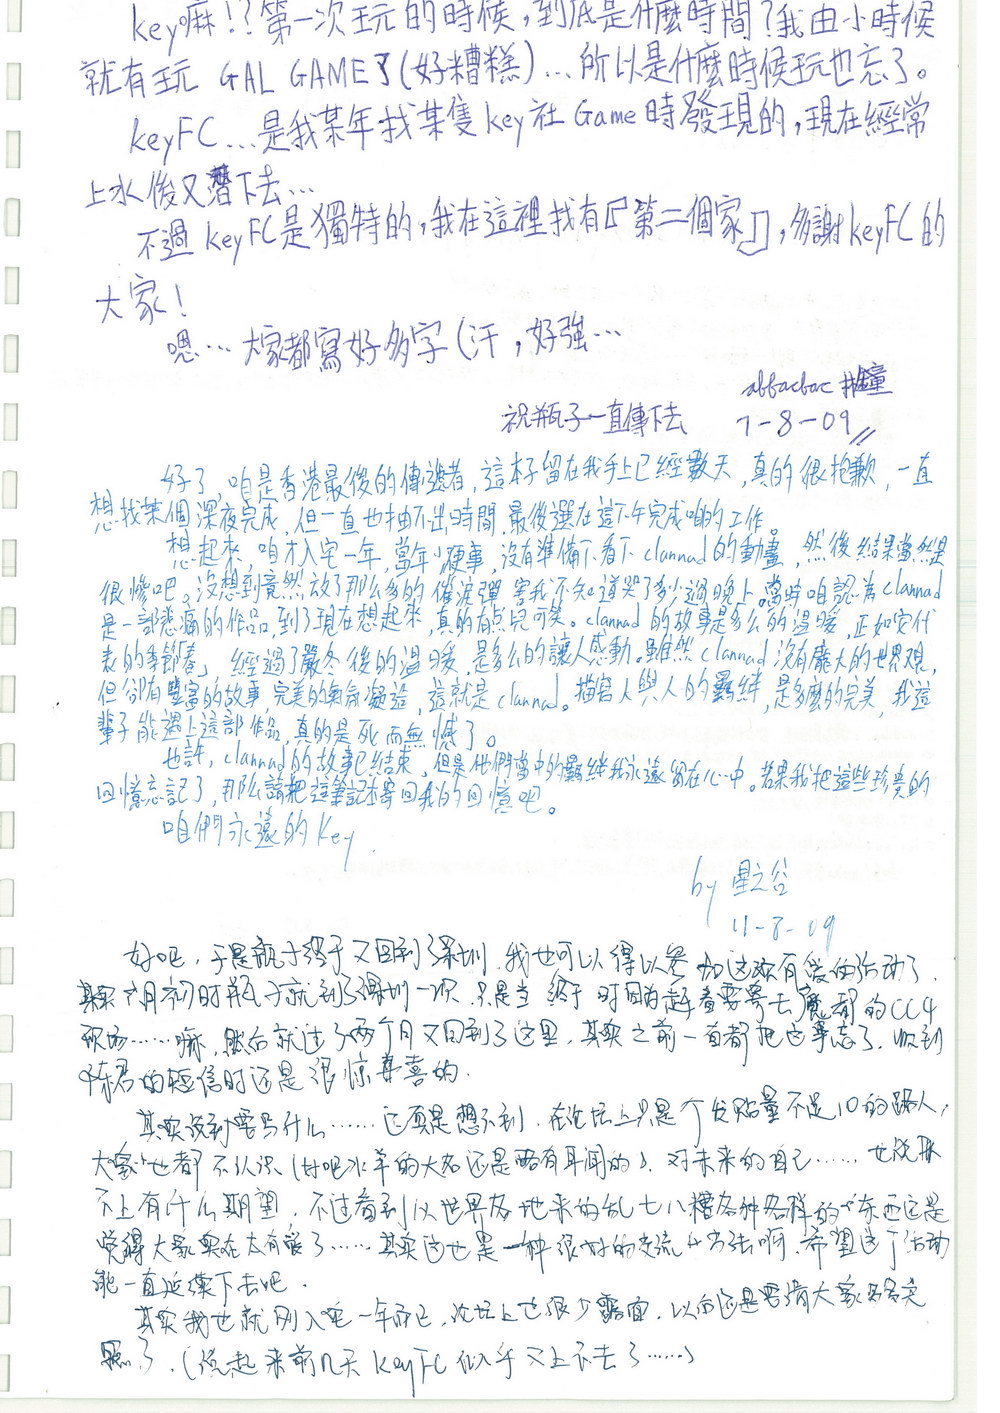 key嘛!?第一次玩的時候,到底是什麼時間?我由小時候
就有玩 GAL GAME了(好糟糕)...所以是什麼時候玩也忘了。
keyFC...是我某年找某隻key社Game時發現的,現在經常
上水後又潛下去...
不過keyFC是獨特的,我在這裡找有『第二個家』,多謝keyFC的
大家!
嗯...大家都寫好多字(汗,好強...
祝瓶子一直傳下去 7-8-09
好了,咱是香港最後的傳遞者,這本子留在我手上已經數天,真的很抱歉,一直
想找某個深夜完成,但一直也抽不出時間,最後選在這下午完成咱的工作。
想起來,咱才入宅一年,當年小硬事,沒有準備下看下clannad的動畫,然後結果當然是
很慘吧。沒想到竟然放了那么多的催淚彈,害我不知道哭了多少過晚上。當時咱認為clannad
是一部悲痛的作品,到了現在想起來,真的有点兒可笑。clannad的故事是多么的溫暖,正如它代
表的季節「春」,經過了嚴冬後的溫暖,是多么的讓人感動。雖然clannad沒有龐大的世界觀,
但卻有豐富的故事,完美的氣氛凝造,這就是clannad。描寫人與人的羈絆,是多麼的完美,我這
輩子能遇上這部作品,真的是死而無憾了。
也許,clannad的故事已結束,但是他們當中的羈絆我永遠留在心中。若果我把這些珍貴的
回憶忘記了,那么請把這筆記本寄回我的回憶吧。
咱們永遠的Key
by 星之谷
11-8-09
好吧,于是瓶子终于又回到了深圳,我也可以得以参加这次有爱的活动了.
其实六月初时瓶子就到了深圳一次,只是当 时因为赶着要寄去魔都的CC4
现场......嘛,然后就过了两个月又回到了这里.其实之前一直都把这事忘了.收到
陈君的短信时还是很惊喜的.
其实说到要写什么......还真是想不到.在论坛上只是个发贴量不足10的路人,
大家也都不认识(好吧水羊的大名还是略有耳闻的).对未来的自己......也说
不上有什么期望.不过看到从世界各地来的乱七八糟各种各样的"东西还是
觉得大家实在太有爱了......其实这也是一种很好的交流方法啊.希望这个活动
能一直延续下去吧.
其实我也就刚入宅一年而已,论坛上也很少露面.以后还是要请大家多多
了.(说起来前几天KeyFC似乎又上不去了......)